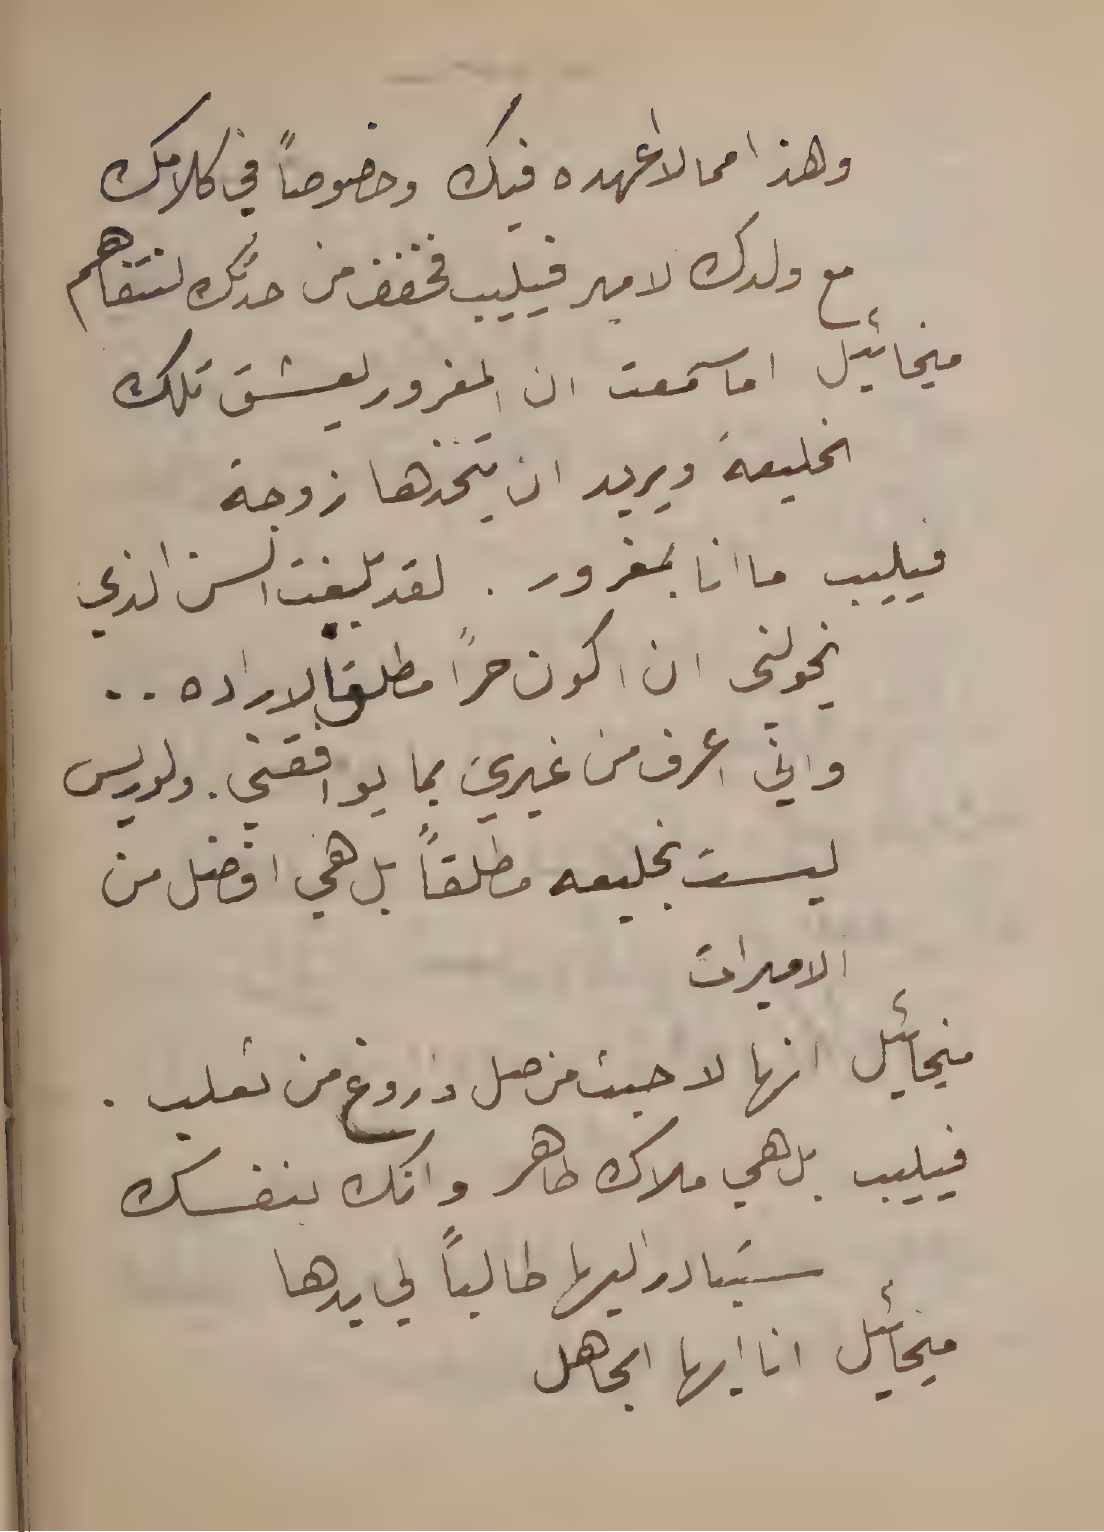 وهذا مما لا اعهده فيك وخصوصاً في كلامك
مع ولدك لامير فيليب فخفف من حدتك لنتفاهم
ميخائيل اما سمعت ان المغرور يعشق تلك
الخليعة ويريد ان يتخذها زوجة
فيليب ما انا بمغرور . لقد بلغت السن الذي
يخولني ان اكون حراً مطلق الاراده ..
واني اعرف من غيري بما يوافقني . ولوريس
ليست بخليعه مطلقاً بل هي افضل من
الاميرات
ميخائيل انها لاخبث من صل واروغ من ثعلب .
فيليب بل هي ملاك طاهر وانك بنفسك
ستبادر اليها طالباً لي يدها
ميخائيل انا ايها الجاهل